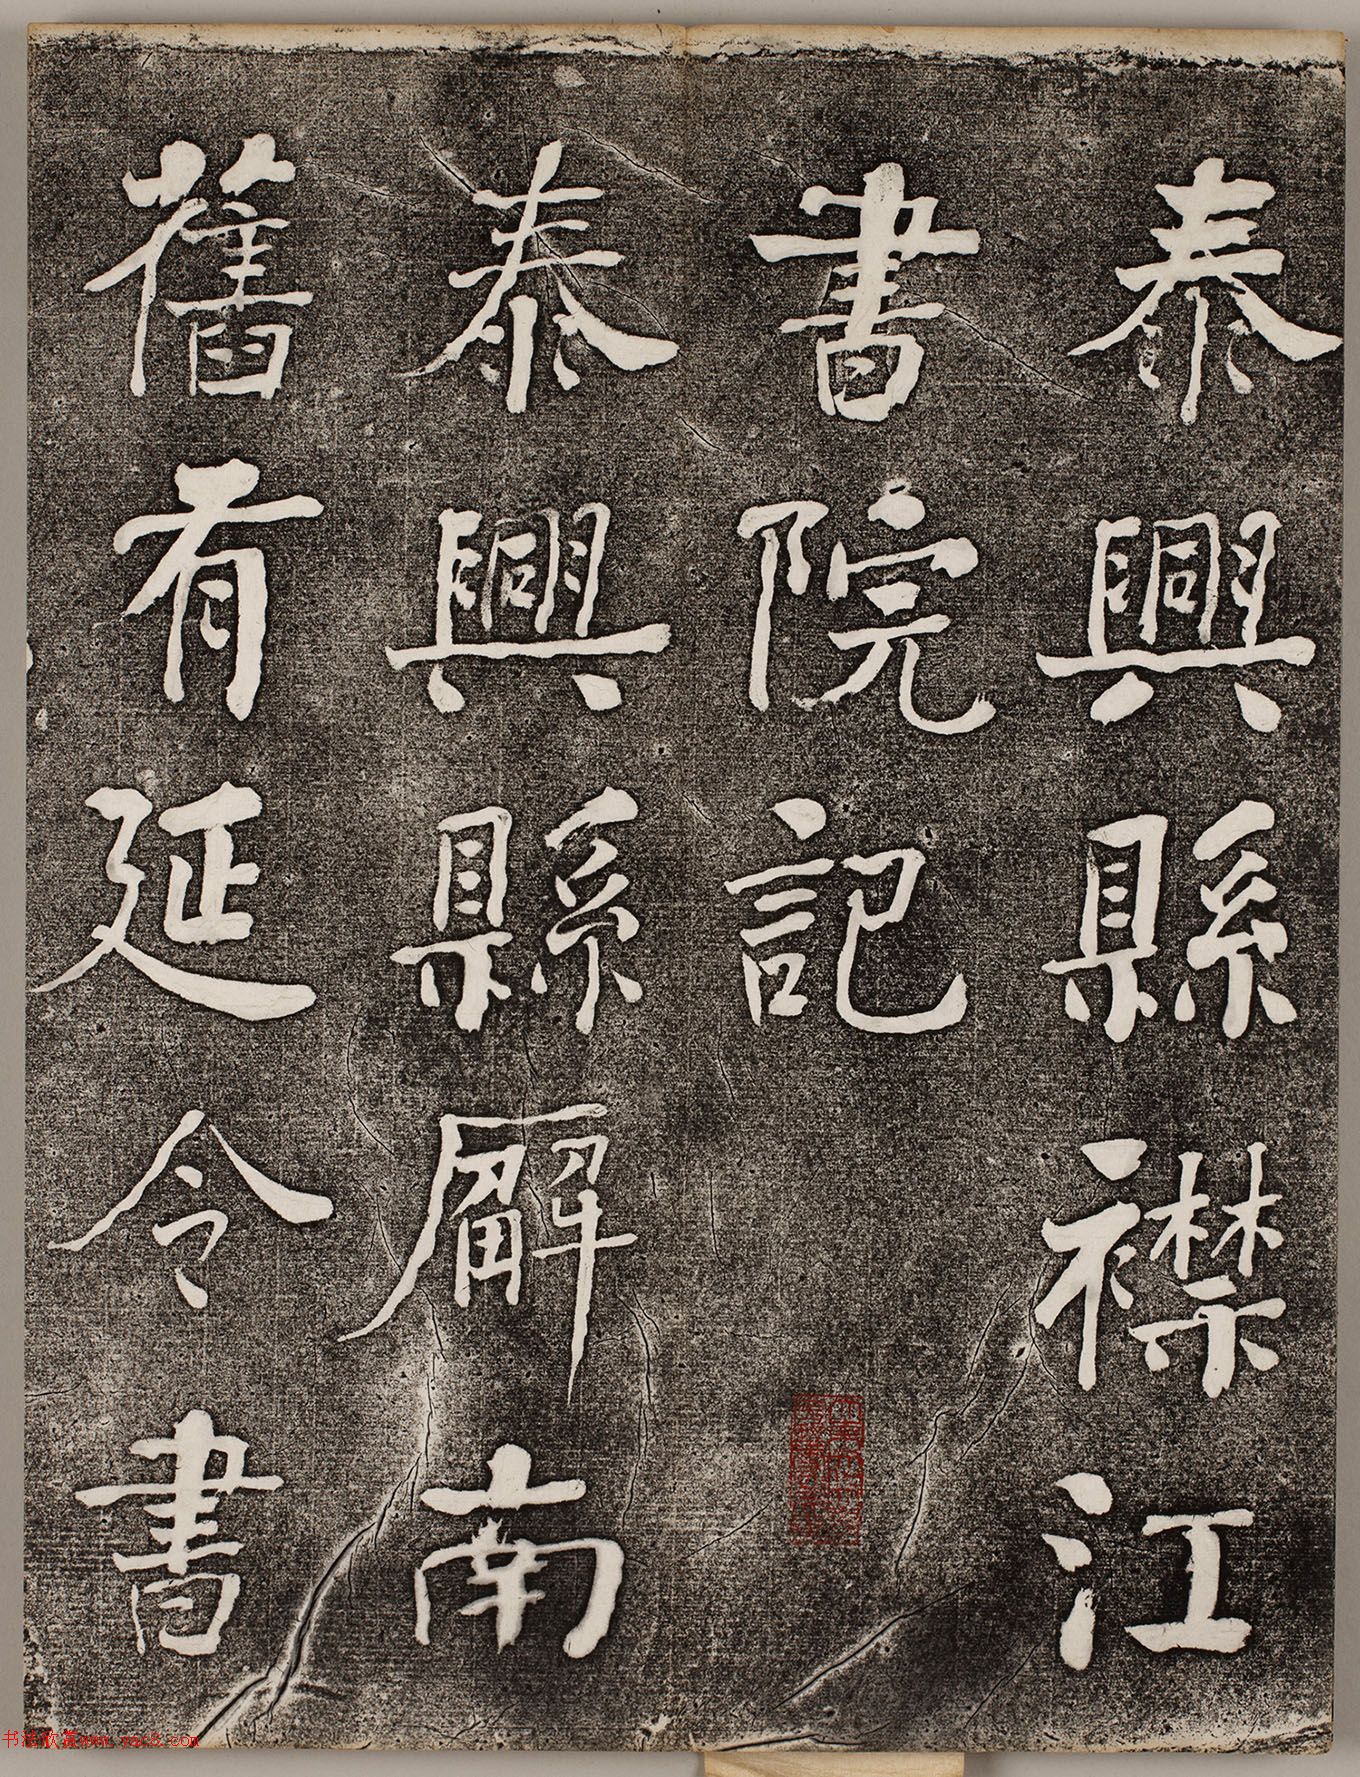 泰興縣襟江
書院記
泰興縣廨南
舊有延令書
书法欣赏www.yac8.com